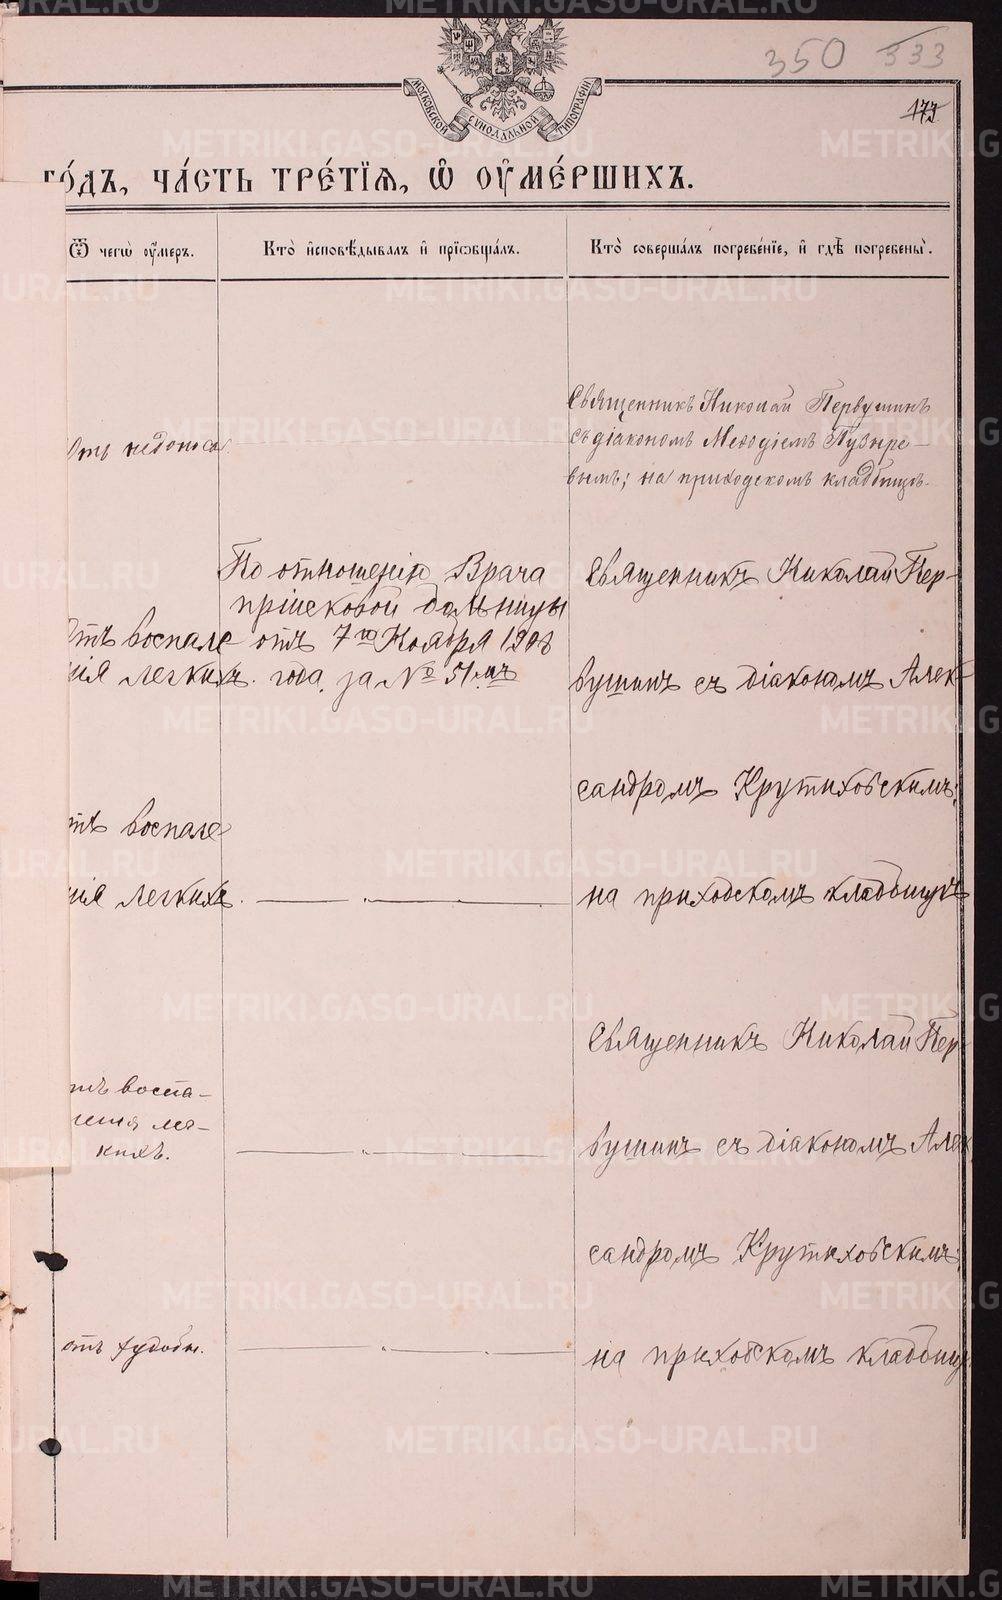 350 333
173
МОСКОВСКОЙ СѴНОДАЛЬНОЙ ТИПОГРАФІИ
го́дъ, ча́сть тре́тїѧ, ѡ҆ ᲂу҆ме́ршихъ.
Ѿ чегѡ̀ ᲂу҆́меръ.
Кто̀ и҆сповѣ́дывалъ и҆ прїѡбща́лъ.
Кто̀ соверша́лъ погребе́нїе, и҆ гдѣ̀ погребены̀.
Отъ недоноса
Священникъ Николай Первушинъ
съ діакономъ Меѳодіемъ Пузыре-
вымъ; на приходскомъ кладбищѣ.
тъ воспале
нія легкихъ.
По отношенію Врача
пріисковой больницы
отъ 7го Ноября 1908
года, за № 51.мъ
Священникъ Николай Пер-
вушинъ съ діакономъ Алек-
сандромъ Крутиховскимъ;
на приходскомъ кладбищѣ
тъ воспале
нія легкихъ.
тъ воспа-
ленія ле-
кихъ.
Священникъ Николай Пер-
вушинъ съ діакономъ Алек
сандромъ Крутиховскимъ;
на приходскомъ кладбищ
отъ худобы.
METRIKI.GASO-URAL.RU